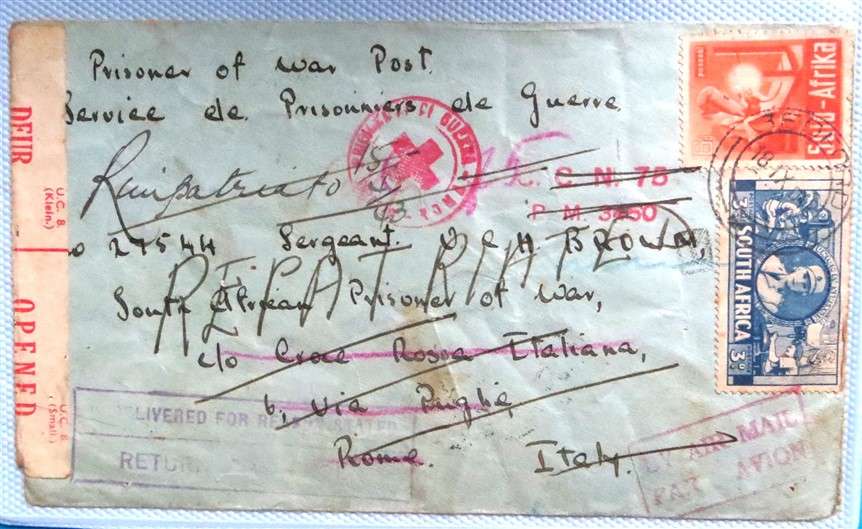 Prisoner of War Post.
Service de Prisonniers de Guerre
Rimpatriato 15/
C. C. N. 78
P. M. 3450
No 27544 Sergeant. D C H. BROWN,
REPATRIATED
South African Prisoner of War,
c/o Croce Rossa Italiana,
6, Via Puglie,
Rome. Italy.
OPENED
U.C. 8
(Klein.)
U.C. 8
(Small.)
LIVERED FOR REASON STATED
RETUR
BY AIR MAIL
PAR AVION
Suid-Afrika
SOUTH AFRICA
3D